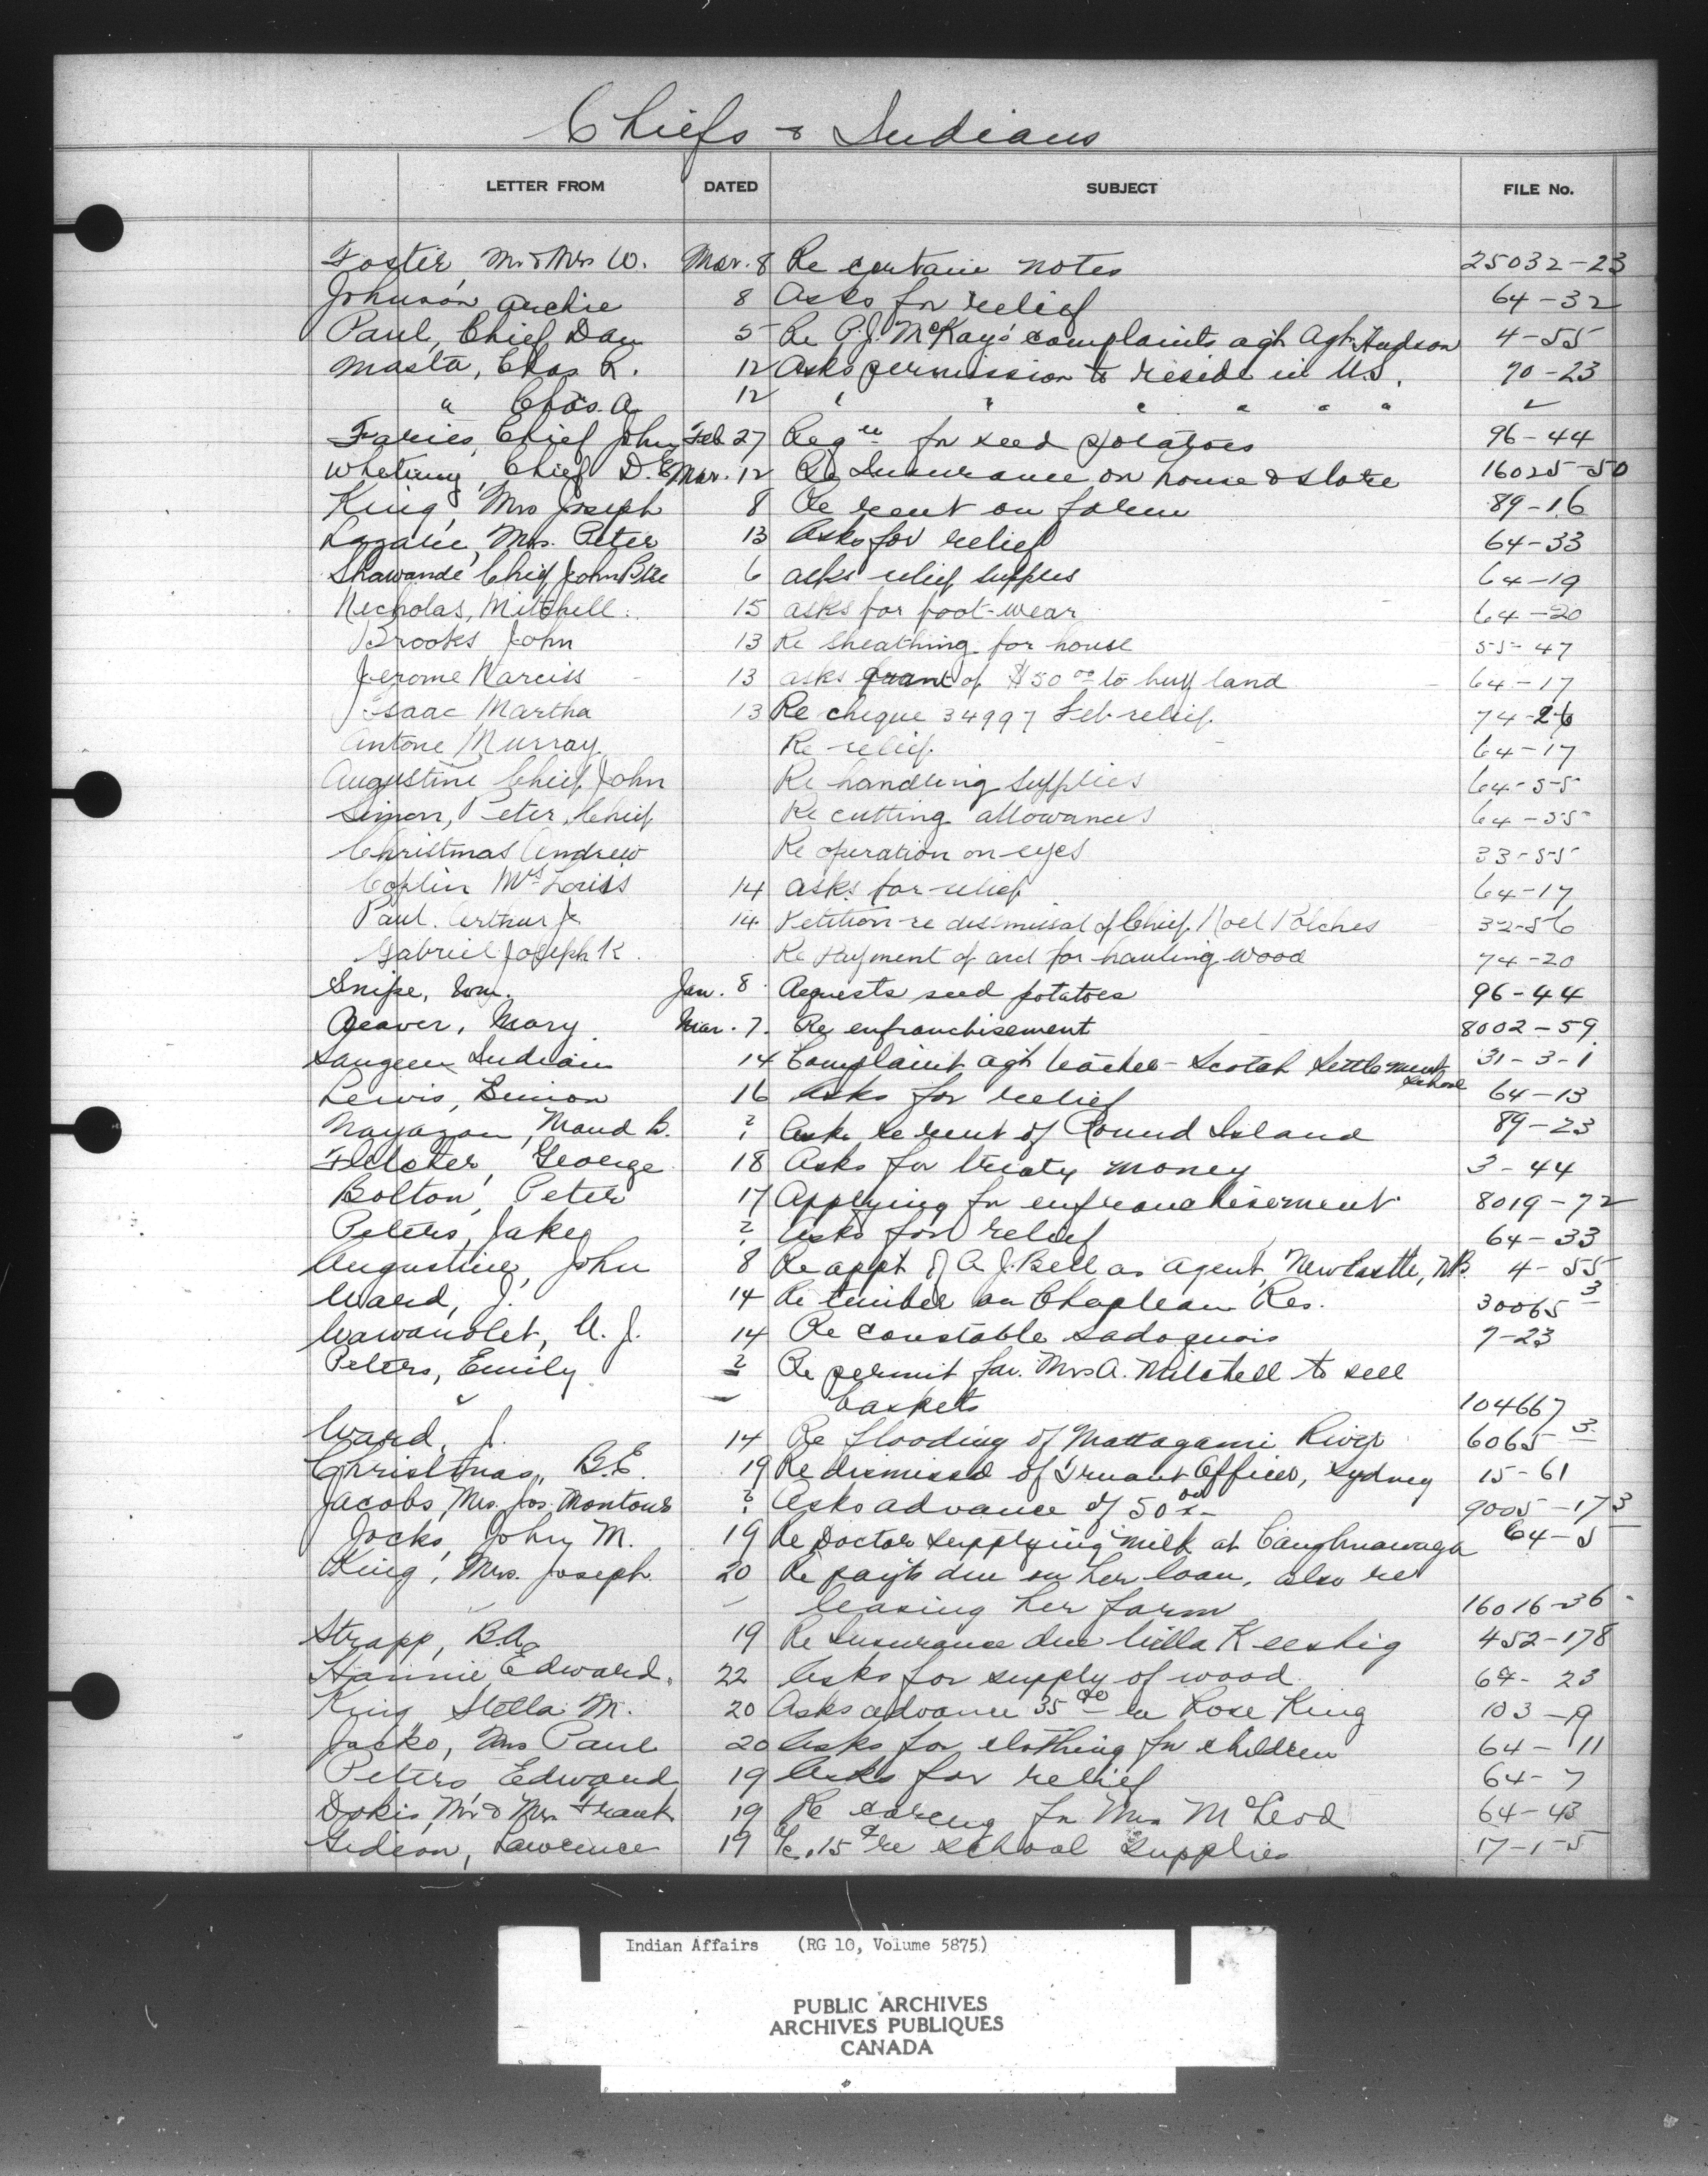 Chiefs & Indians
LETTER FROM DATED SUBJECT FILE No.
Foster, Mr & Mrs W. Mar. 8 Re certain notes 25032-23
Johnson, Archie 8 Asks for relief 64-32
Paul, Chief Dan 5 Re P.J. McKay's complaints agt Agt. Hudson 4-55
Masta, Chas R. 12 Asks permission to reside in U.S. 70-23
" Chas. A. 12 " " " " " "
Faries, Chief John Feb 27 Reqn for seed potatoes 96-44
Whetung, Chief D.E. Mar. 12 Re Insurance on house & store 16025-50
King, Mrs Joseph 8 Re rent on farm 89-16
Lazare, Mrs. Peter 13 Asks for relief 64-33
Shawande Chief John Bte 6 asks relief supplies 64-19
Nicholas, Mitchell. 15 asks for foot-wear 64-20
Brooks John 13 Re sheathing for house 55-47
Jerome Narciss 13 asks grant of $50 00 to buy land 64-17
Isaac Martha 13 Re cheque 34997 Feb relief 74-26
Antone Murray Re relief 64-17
Augustine Chief John Re handling supplies 64-55
Simon, Peter, Chief Re cutting allowances 64-55
Christmas Andrew Re operation on eyes 33-55
Coplin Mrs Louis 14 asks for relief 64-17
Paul. Arthur J. 14 Petition re dismissal of Chief Noel Polches 32-56
Gabriel Joseph K. Re Payment of acct for hauling wood 74-20
Snipe, Wm. Jan. 8 Requests seed potatoes 96-44
Beaver, Mary Mar. 7. Re enfranchisement 8002-59
Saugeen Indian 14 Complaint agt teacher - Scotch Settlement School 31-3-1
Lewis, Simion 16 Asks for relief 64-13
Maud B. ? Asks re rent of Round Island 89-23
Fletcher, George 18 Asks for treaty money 3-44
Bolton, Peter 17 Applying for enfranchisement 8019-72
Peters, Jake ? Asks for relief 64-33
Augustine, John 8 Re appt of A.J. Bell as agent, Newcastle, N.B. 4-55
Ward, J. 14 Re timber on Chapleau Res. 30065-3
Wawanolet, A. J. 14 Re constable Sadoquois 7-23
Peters, Emily ? Re permit for Mrs A. Mitchell to sell
baskets 104667
Ward, J. 14 Re flooding of Mattagami River 6065-3
Christmas, B.E. 19 Re dismissal of Truant Officer, Sydney 15-61
Jacobs, Mrs. Jos. Montour ? Asks advance of 50 00 9005-173
Jocks, John M. 19 Re Doctor supplying milk at Caughnawaga 64-5
King, Mrs. Joseph 20 Re payts due on her loan, also re
leasing her farm 16016-36
Strapp, B.A. 19 Re Insurance due Willa Keeshig 452-178
Hannie Edward. 22 Asks for supply of wood 64-23
King Stella M. 20 Asks advance 35 00 ex Rose King 103-19
Jacko, Mrs Paul 20 Asks for clothing for children 64-11
Peters, Edward 19 Asks for relief 64-7
Dokis, Mr & Mrs Frank 19 Re caring for Mrs McLeod 64-43
Gideon, Lawrence 19 15 re school supplies 17-1-5
Indian Affairs (RG 10, Volume 5875)
PUBLIC ARCHIVES
ARCHIVES PUBLIQUES
CANADA